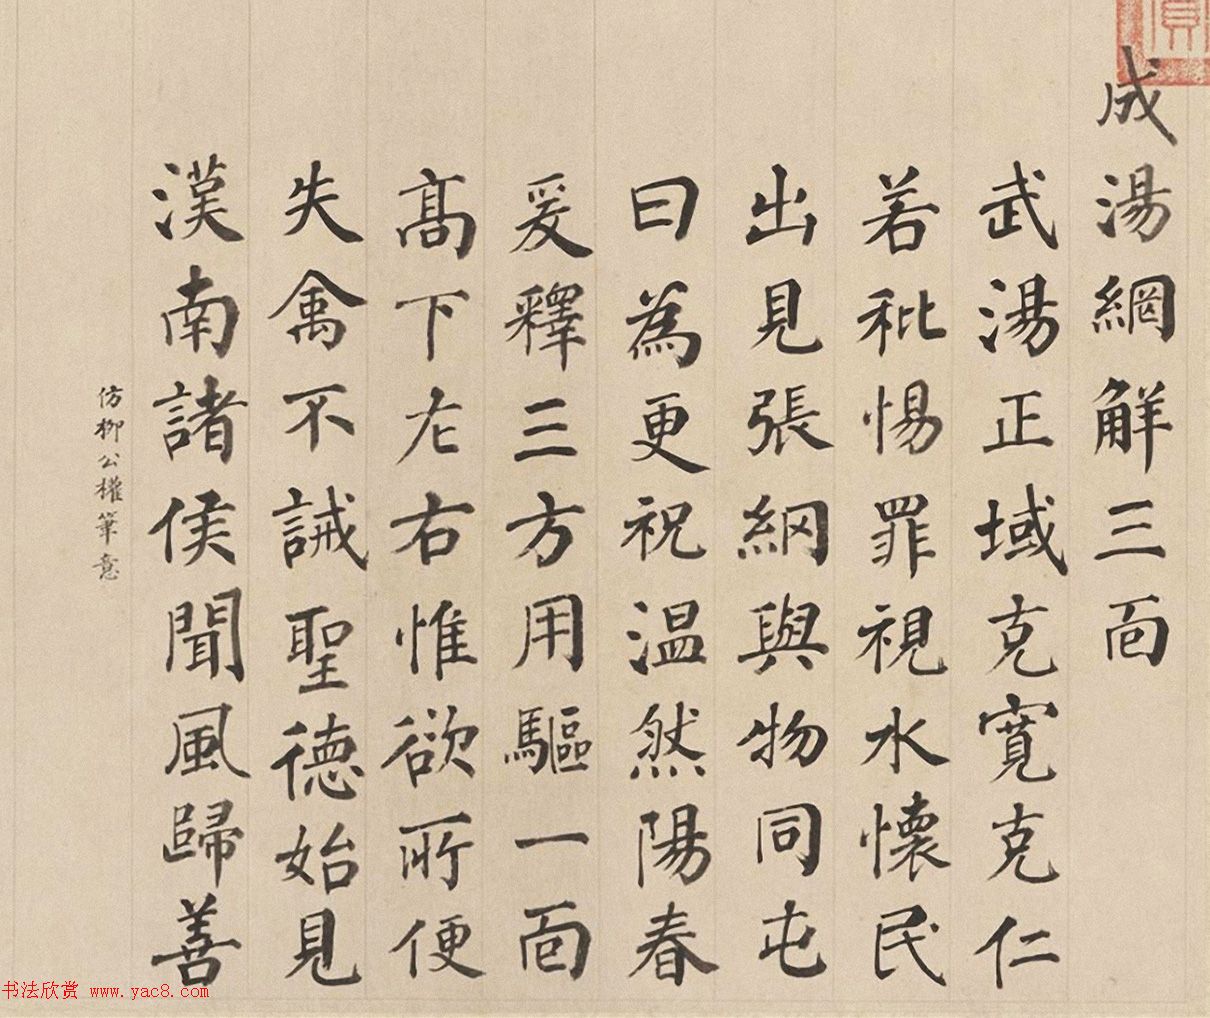 成湯網解三面
武湯正域克寬克仁
若秕惕罪視水懷民
出見張網與物同屯
曰為更祝温然陽春
爰釋三方用驅一面
高下左右惟欲所便
失禽不誡聖德始見
漢南諸侯聞風歸善
仿柳公權筆意
书法欣赏 www.yac8.com